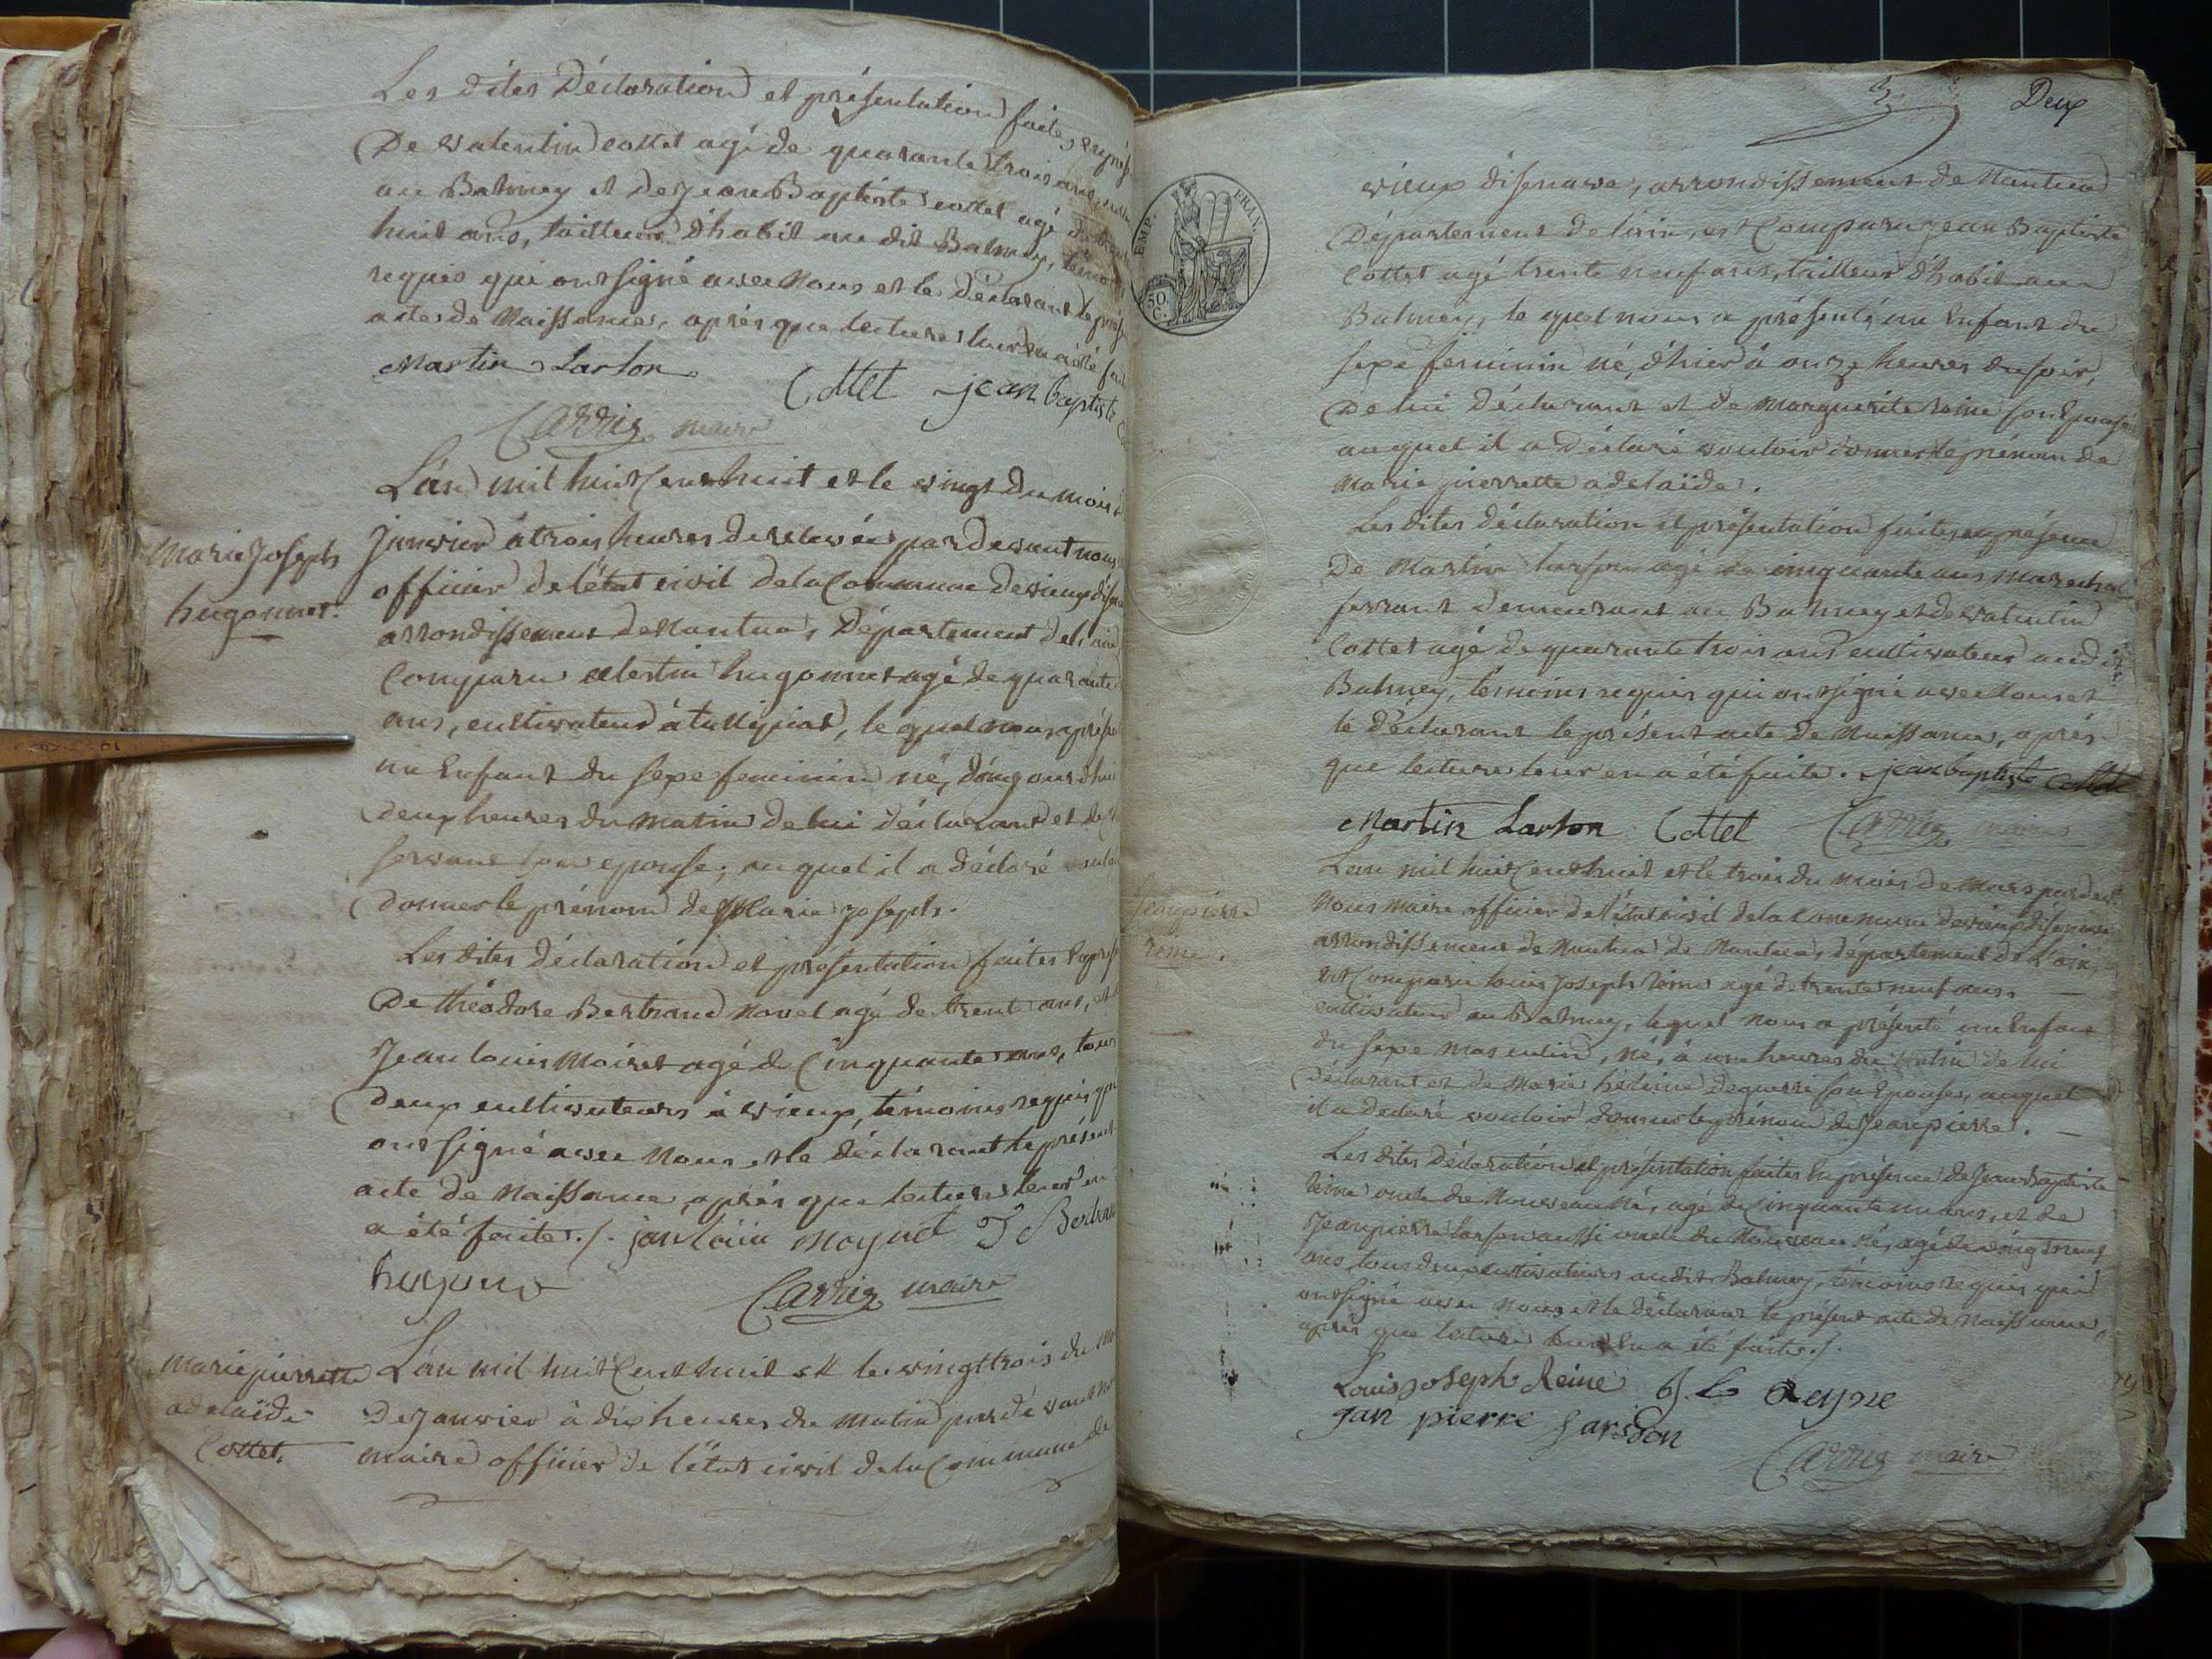 Les dites Déclaration et présentation faites
De valentin cottet agé de quarante trois ans,
au Balmey et de Jean Baptiste cottet agé de
huit ans, tailleur d'habit au dit Balmey, témoins
requis qui ont signé avec Nous et le Déclarant le
actes de Naissance, après que lectures leur en a été
Martin Larson Cottet jean baptiste
Carrier maire
L'an mil huit Cent huit et le vingt du mois
Janvier à trois heures de relevée par devant nous
officier de l'état civil de la Commune de vieux
arrondissement de Nantua, Département de l'ain
Comparu celestin hugonnet agé de quarante
ans, cultivateur à tallipiat, le quel nous
un Enfant du sexe feminin né, d'aujourd'hui
deux heures du matin de lui déclarant et de
servant son epouse, au quel il a déclaré
Donner le prénom de Marie joseph.
Les dites déclaration et présentation faites
De théodore Bertrand Novel agé de trent ans,
Jean louis Moiret agé de Cinquante ans, tous
deux cultivateurs à vieux, témoins requis qui
ont signé avec Nous et le déclarant le présent
acte de Naissance, après que lecture leur en
a été faite./. jan loüi moynet
Carrier maire
Marie Joseph
hugonnet.
L'an mil huit Cent huit et le vingt trois du
De Janvier à dix heures du matin par dévant
maire officier de l'état civil de la Commune de
marie pierrette
adelaïde
Cottet.
Deux
EMP. FRAN.
50. C.
vieux d'isenave, arrondissement de Nantua
Département de l'ain, est Comparu jean Baptiste
Cottet agé trente neuf ans, tailleur d'habit au
Balmey, le quel nous a présenté un Enfant du
sexe feminin né, d'hier à onze heures du soir,
De lui Déclarant et de marguerite reine son Epouse
auquel il a Déclaré vouloir donner le prénom de
Marie pierrette adelaïde.
Les dites déclaration et présentation faites en présence
De Martin larson agé de cinquante ans marechal
ferrant demeurant au Balmey et de valentin
Cottet agé de quarante trois ans cultivateur audit
Balmey, témoins requis qui ont signé avec Nous et
le déclarant le présent acte de Naissance, après
que lecture leur en a été faite. jean baptiste Cottet
Martin Larson Cottet Carrier maire
L'an mil huit Cent huit et le trois du mois de Mars par devt
Nous maire officier de l'état civil de la Commune de vieux d'isenave
arrondissement de Nantua de Nantua, département de L'ain,
est Comparu louis Joseph reine agé de trente neuf ans,
cultivateur au Balmey, lequel nous a présenté un Enfant
du sexe masculin, né, à une heures du matin de lui
Déclarant et de Marie son Epouse, auquel
il a declaré vouloir donner le prénom de Jean pierre.
Les dites déclaration et présentation faites En présence de Jean Baptiste
reine oncle du Nouveau Né, agé de Cinquante un ans, et de
Jean pierre larson aussi oncle du Nouveau Né, agé de vingt neuf
ans, tous deux cultivateurs audit Balmey, témoins requis qui
ont signé avec nous et le déclarant le présent acte de Naissance,
après que lecture leur En a été faite./.
Jean pierre
reine.
Louis joseph Reine J. b Reyne
jan pierre Larson
Carrier maire